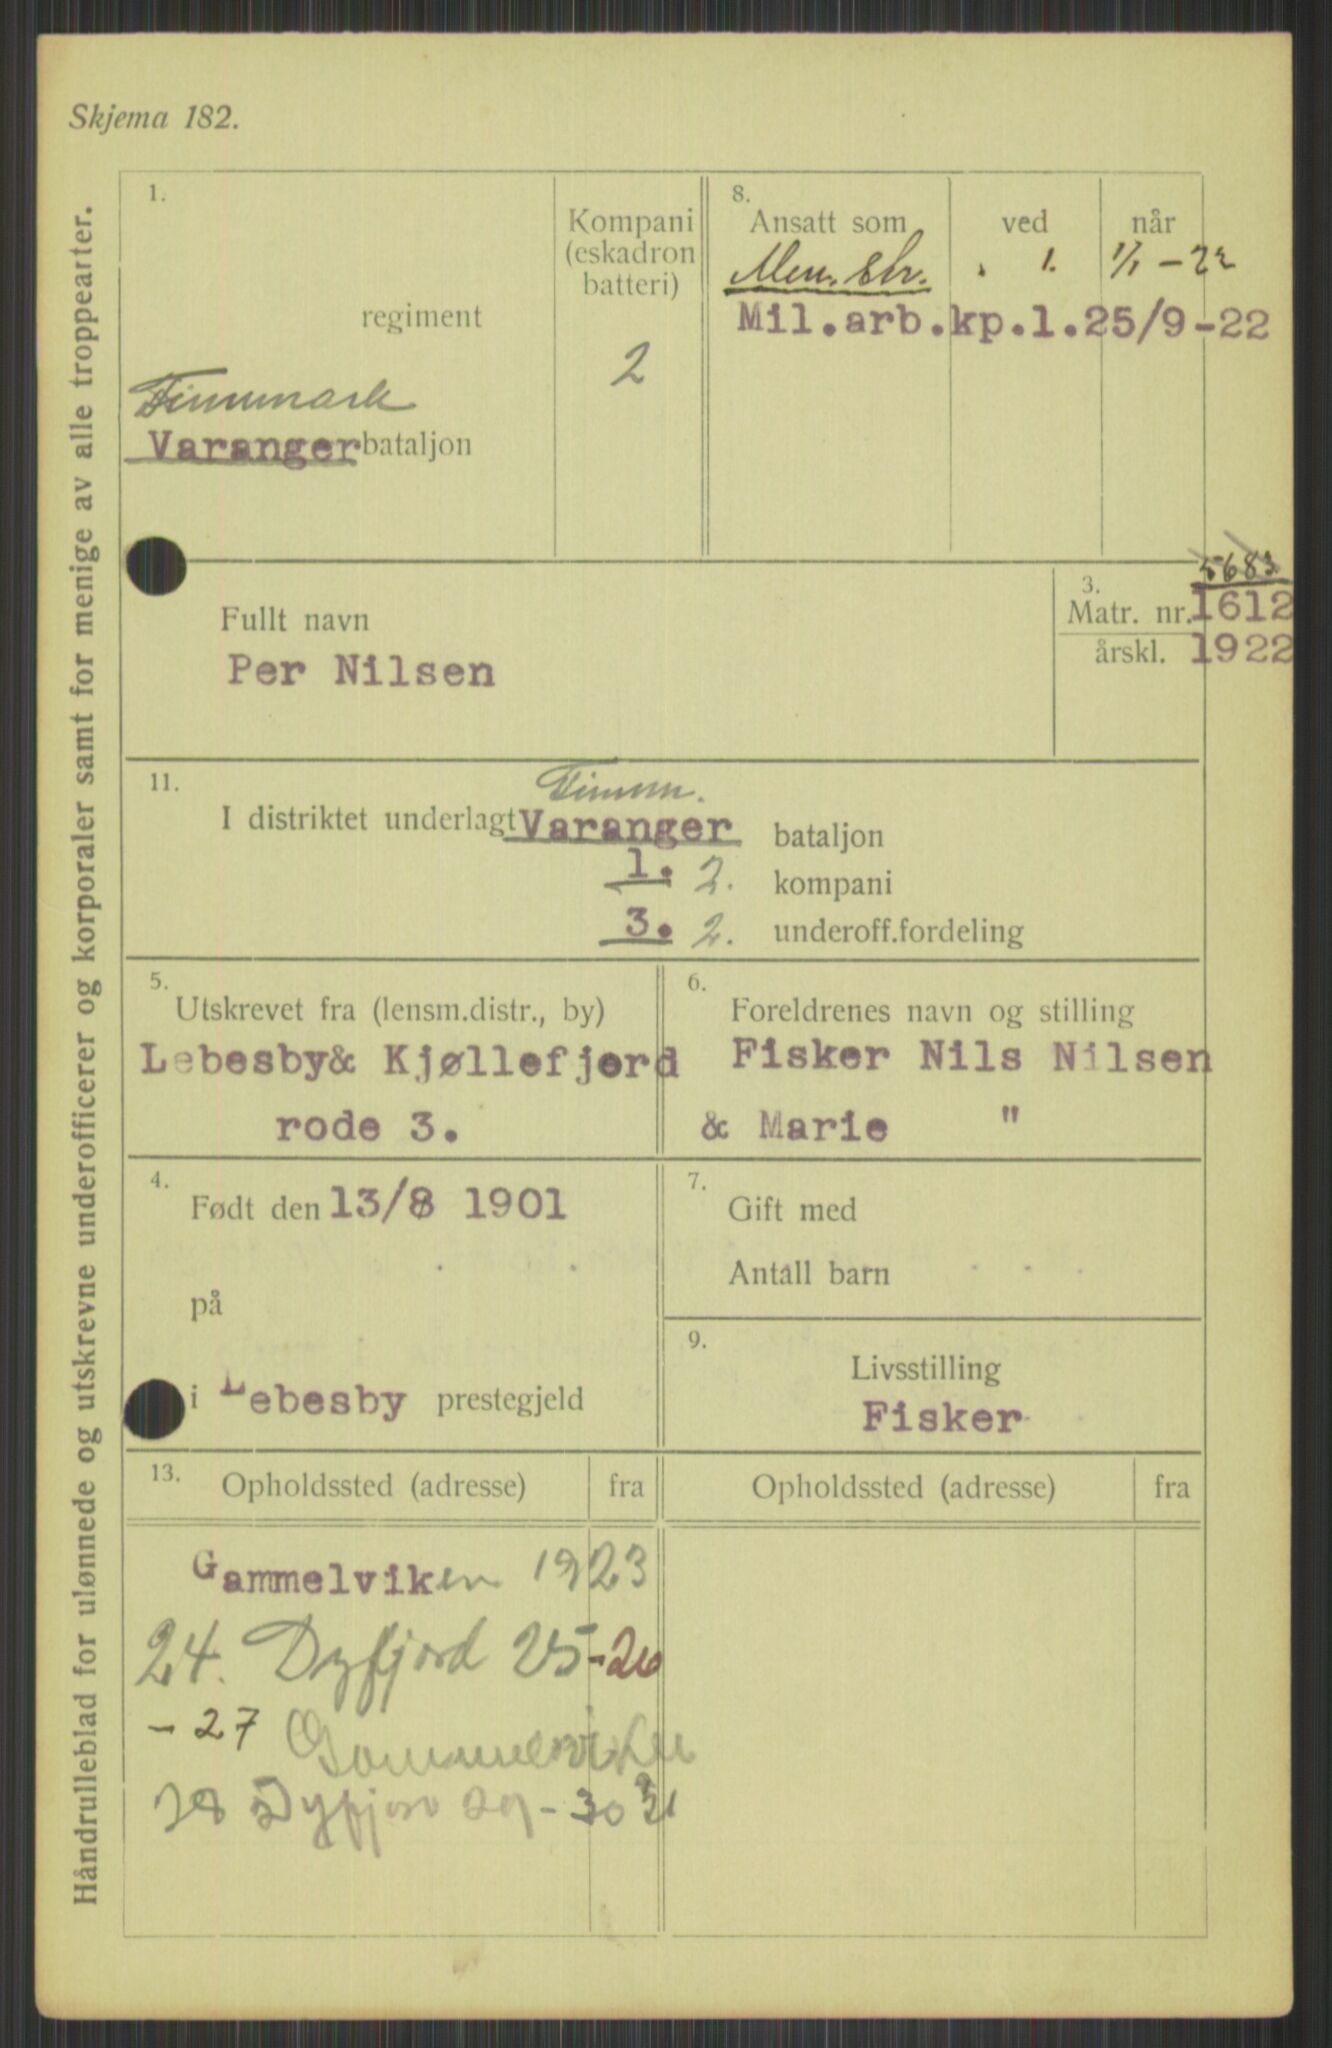 Skjema 182.
Håndrulleblad for ulønnede og utskrevne underofficerer og korporaler samt for menige av alle troppearter.
1.
regiment
Finnmark
Varanger bataljon
Kompani
(eskadron
batteri)
2
8.
Ansatt som ved når
Men. Str. . 1. 1/1 - 22
Mil.arb.kp.1.25/9-22
Fullt navn
Per Nilsen
5683
3.
Matr. nr. 1612
årskl. 1922
11.
Finnm.
I distriktet underlagt Varanger bataljon
1. 2. kompani
3. 2. underoff.fordeling
5.
Utskrevet fra (lensm.distr., by)
Lebesby& Kjøllefjord
rode 3.
6.
Foreldrenes navn og stilling
Fisker Nils Nilsen
& Marie "
4.
Født den 13/8 1901
på
i Lebesby prestegjeld
7.
Gift med
Antall barn
9.
Livsstilling
Fisker
13.
Opholdssted (adresse) fra
Opholdssted (adresse) fra
Gammelviken 1923
24. Dyfjord 25-26
- 27 Gammelviken
28 Dyfjord 29-30 31